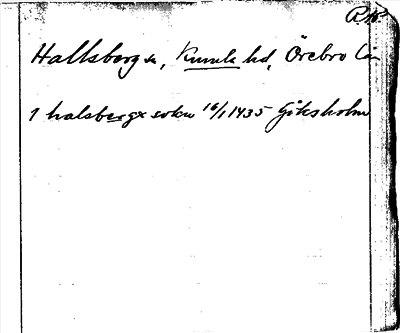 Hallsberg sn, Kumla hd, Örebro län
j halsbergx sokn 16/1 1435 Göksholm